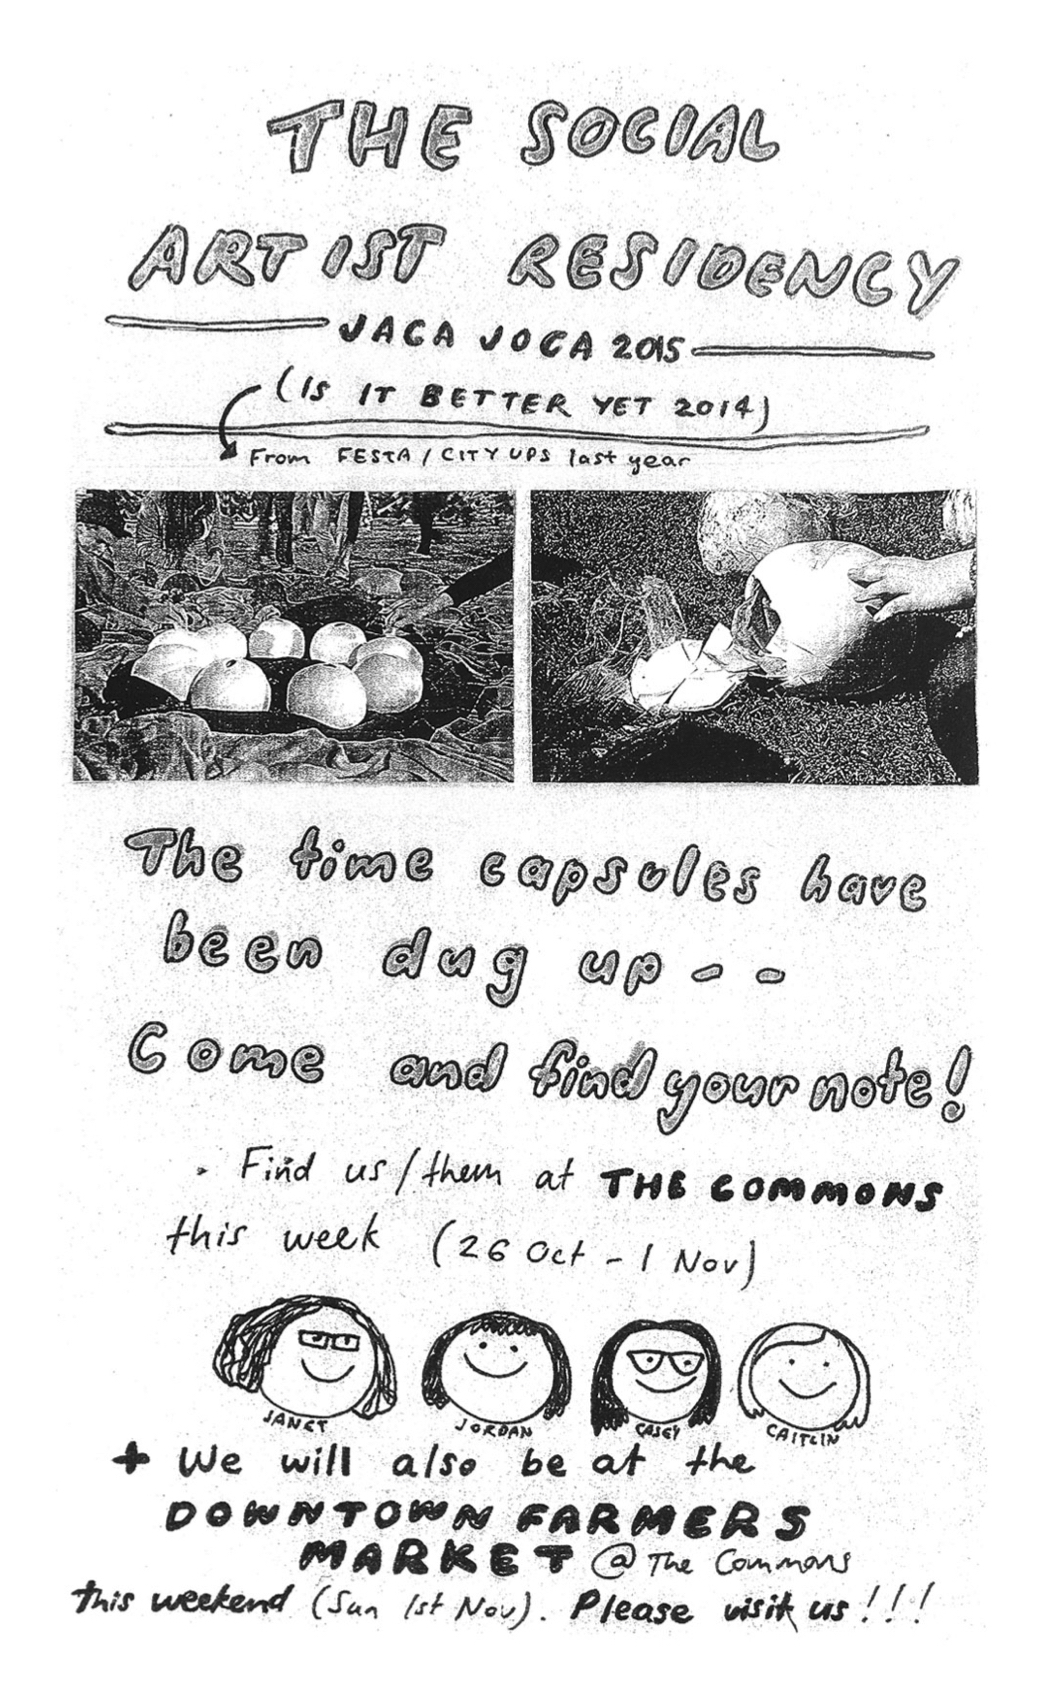 THE SOCIAL
ARTIST RESIDENCY
JAGA JOGA 2015
(IS IT BETTER YET 2014)
From FESTA / CITY UPS last year
The time capsules have
been dug up - -
Come and find your note!
• Find us/them at THE COMMONS
this week (26 Oct - 1 Nov)
JANET JORDAN CASEY CAITLIN
+ We will also be at the
DOWNTOWN FARMERS
MARKET @ The Commons
this weekend (Sun 1st Nov). Please visit us!!!